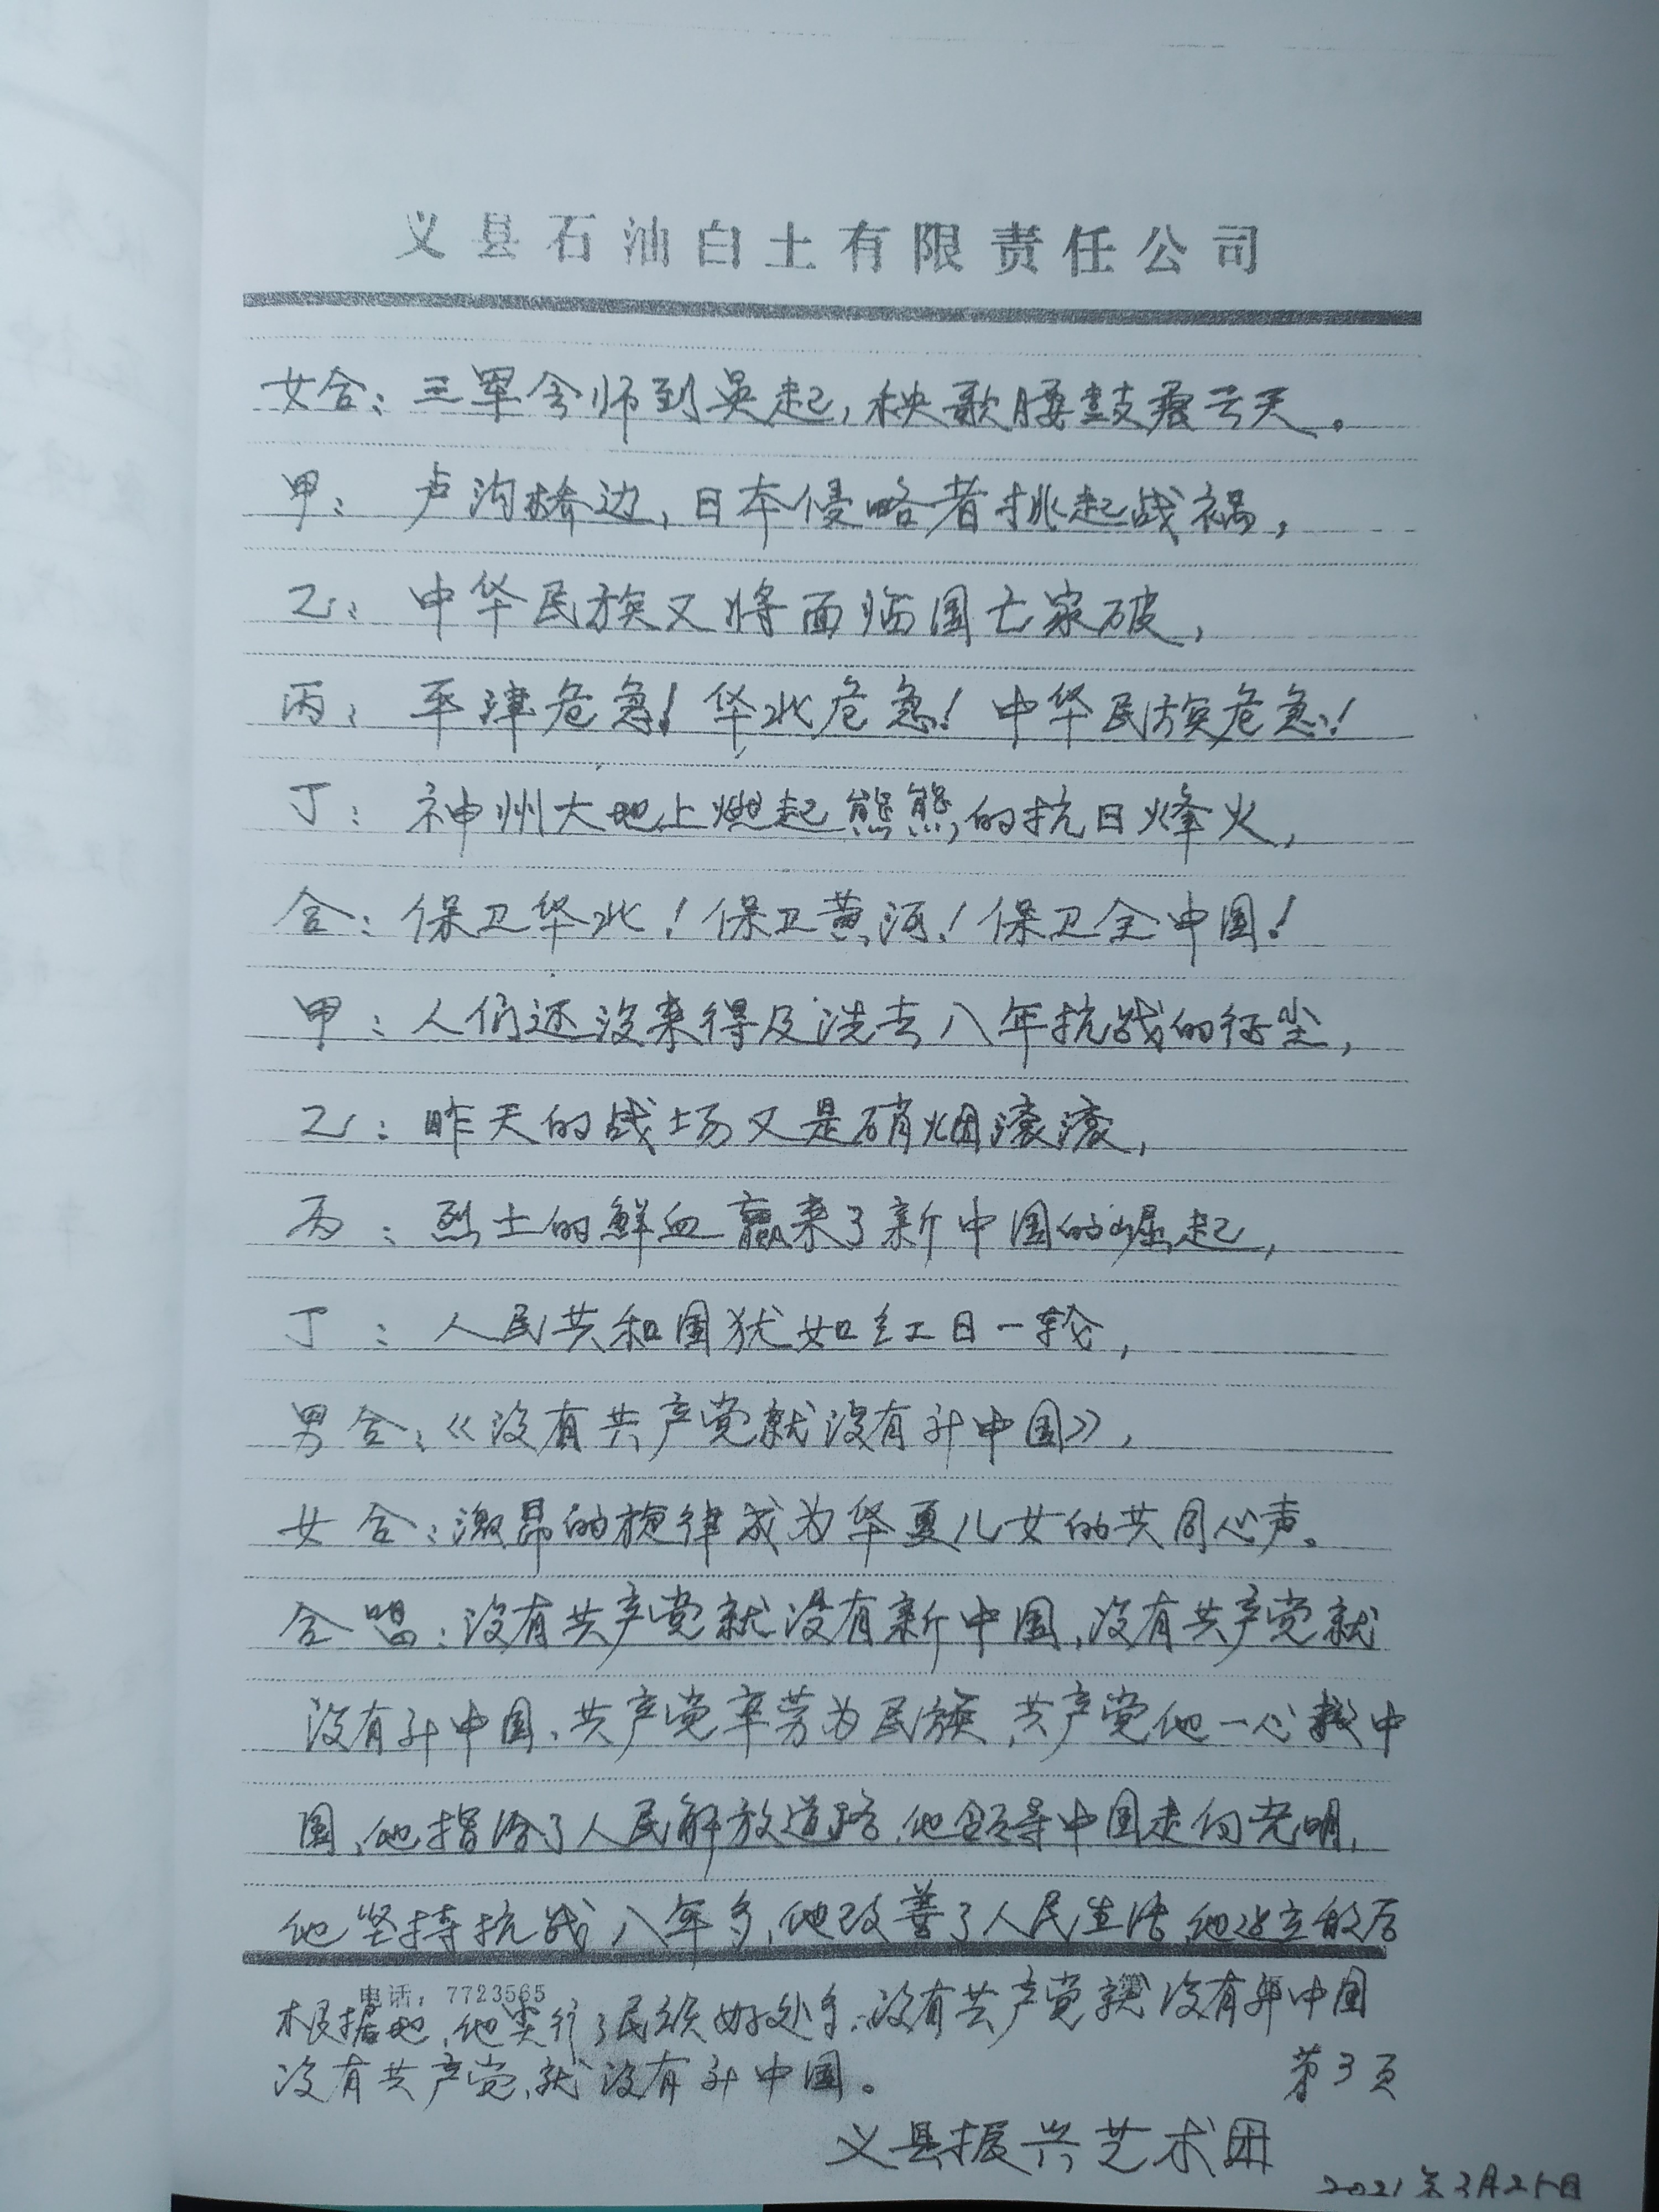 义县石油白土有限责任公司
女合：三军会师到吴起，秧歌腰鼓震云天。
甲：卢沟桥边，日本侵略者挑起战祸，
乙：中华民族又将面临国亡家破，
丙：平津危急！华北危急！中华民族危急！
丁：神州大地上燃起熊熊的抗日烽火，
合：保卫华北！保卫黄河！保卫全中国！
甲：人们还没来得及洗去八年抗战的征尘，
乙：昨天的战场又是硝烟滚滚，
丙：烈士的鲜血赢来了新中国的崛起，
丁：人民共和国犹如红日一轮，
男合：《没有共产党就没有新中国》，
女合：激昂的旋律成为华夏儿女的共同心声。
合唱：没有共产党就没有新中国，没有共产党就
没有新中国，共产党辛劳为民族，共产党他一心救中
国，他指给了人民解放道路，他领导中国走向光明，
他坚持抗战八年多，他改善了人民生活，他建立敌后
电话：7723565
根据地，他实行了民族好处多，没有共产党就没有新中国
没有共产党，就没有新中国。
第3页
义县振兴艺术团
2021年3月25日